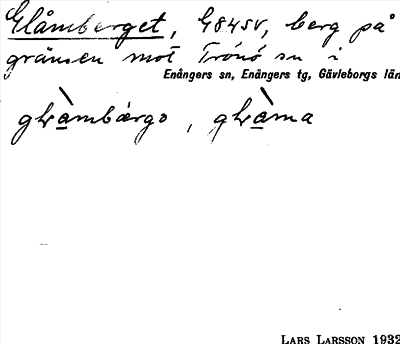 Glåmberget, G84SV, berg på
gränsen mot Trönö sn i
Enångers sn, Enångers tg, Gävleborgs län
LARS LARSSON 1932